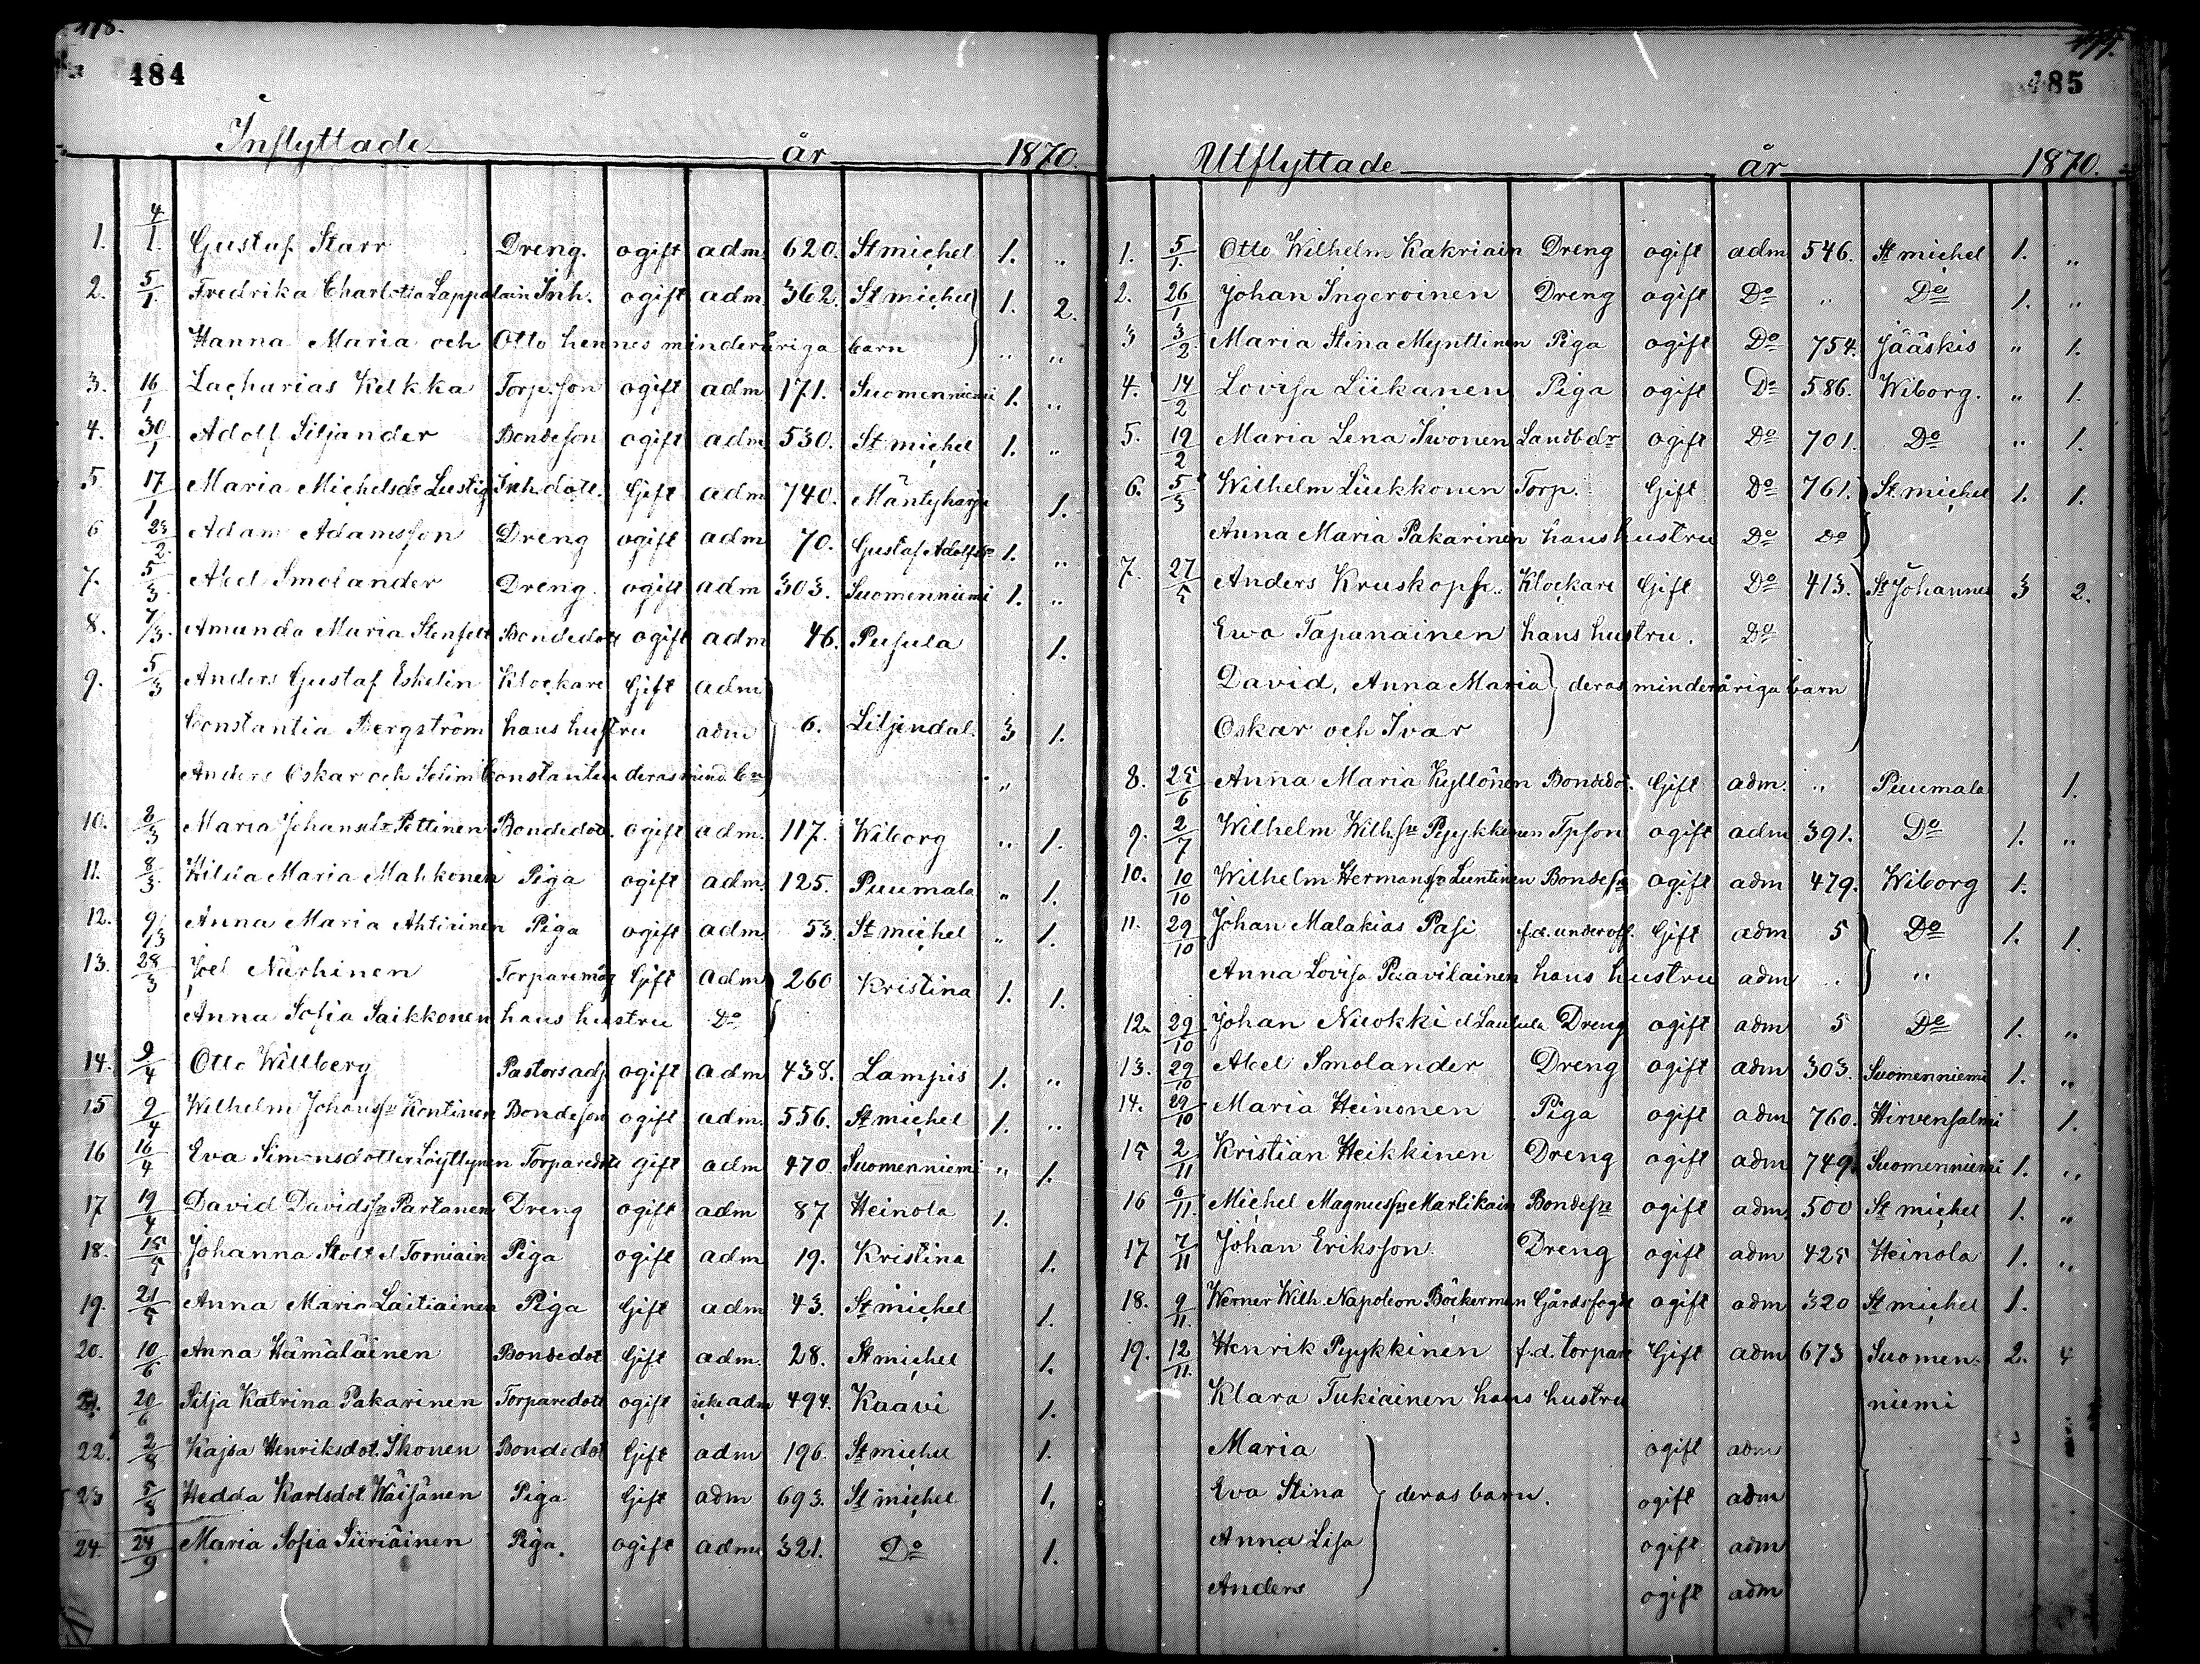 484
Inflyttade år 1870.
1. 4/1. Gustaf Starr Dreng. ogift adm 620. St michel 1. „
2. 5/1. Fredrika Charlotta Lappalain Inh. ogift adm 362. St michel 1. 2.
Hanna Maria och Otto hennes minderåriga barn „ „
3. 16/1 Zacharias Kilkka Torp.son ogift adm 171. Suomenniemi 1. „
4. 30/1 Adolf Siljander Bondeson ogift adm 530. St michel 1. „
5 17/1 Maria Michelsdr Lustig Inh.dott. Gift adm 740. Mäntyharju 1.
6 23/2. Adam Adamsson Dreng ogift adm 70. Gustaf Adolfs 1. „
7. 5/3. Abel Smolander Dreng. ogift adm 303. Suomenniemi 1. „
8. 7/3. Amanda Maria Stenfelt Bondedott ogift adm 46. Pusula 1.
9. 5/3 Anders Gustaf Eskelin Klockare Gift adm
Constantia Bergström hans hustru adm 6. Liljendal 3 1.
Anders Oskar och Selim Constantin deras mind. bn „
10. 8/3 Maria Johansdr Pettinen Bondedot. ogift adm. 117. Wiborg „ 1.
11. 8/3. Hilda Maria Mahkonen Piga ogift adm. 125. Puumala „ 1.
12. 9/3 Anna Maria Ahtiainen Piga ogift adm. 53. St michel „ 1.
13. 28/3 Joel Närhinen Torparemåg Gift adm 260 Kristina 1. 1.
Anna Sofia Saikkonen hans hustru Do
14. 9/4 Otto Willberg Pastorsadj ogift adm 438. Lampis 1. „
15 9/4 Wilhelm Johanssn Kontinen Bondeson ogift adm. 556. St michel 1. „
16 16/4 Eva Simonsdotter Löyttynen Torparedott gift adm 470. Suomenniemi „ 1.
17 19/4 David Davidssn Partanen Dreng ogift adm 87 Heinola 1.
18. 15/5 Johanna Stolt el Torniain Piga ogift adm 19. Kristina 1.
19. 21/5 Anna Maria Laitiainen Piga Gift adm 43. St michel 1.
20. 10/6 Anna Hämäläinen Bondedot Gift adm. 28. St michel 1.
21. 20/6 Silja Katrina Pakarinen Torparedott ogift icke adm 494. Kaavi 1.
22. 2/8 Kajsa Henriksdot. Ikonen Bondedot Gift adm 196. St michel 1.
23 5/8 Hedda Karlsdot. Wäisänen Piga Gift adm 693. St michel 1.
24. 24/9 Maria Sofia Siiriäinen Piga. ogift adm 321. Do 1.
485
Utflyttade år 1870.
1. 5/1. Otto Wilhelm Kakriain Dreng ogift adm 546. St michel 1. „
2. 26/1 Johan Ingeroinen Dreng ogift Do „ Do 1. „
3 3/2. Maria Stina Mynttinen Piga ogift Do 754. Jääskis „ 1.
4. 14/2 Lovisa Liikanen Piga ogift Do 586. Wiborg. „ 1.
5. 19/2 Maria Lena Iwonen Landbdr ogift Do 701. Do „ 1.
6. 5/3 Wilhelm Liukkonen Torp. Gift Do 761. St michel 1. 1.
Anna Maria Pakarinen hans hustru Do Do
7. 27/5 Anders Kruskopf. Klockare Gift Do 413. St Johannes 3 2.
Ewa Tapanainen hans hustru. Do
David, Anna Maria deras minderåriga barn
Oskar och Ivar
8. 25/6 Anna Maria Kyllönen Bondedot. Gift adm. „ Puumala 1.
9. 2/7 Wilhelm Wilhsn Pyykkönen Tpson ogift adm 391. Do 1. „
10. 10/10 Wilhelm Hermanssn Luntinen Bondesn ogift adm 479. Wiborg 1.
11. 29/10 Johan Malakias Pasi f.d. underoff. Gift adm 5 Do 1. 1.
Anna Lovisa Paavilainen hans hustru adm „ „
12. 29/10 Johan Nuokki el Dreng ogift adm 5 Do 1. „
13. 29/10 Abel Smolander Dreng ogift adm 303. Suomenniemi 1. „
14. 29/10 Maria Heinonen Piga ogift adm 760. Hirvensalmi 1.
15 2/11 Kristian Heikkinen Dreng ogift adm 749. Suomenniemi 1. „
16 6/11. Michel Magnussn Martikain Bondesn ogift adm. 500 St michel 1. „
17 7/11 Johan Eriksson. Dreng ogift adm 425 Heinola 1. „
18. 9/11. Werner Wilh. Napoleon Böckerman Gårdsfogde ogift adm 320 St michel 1.
19. 12/11. Henrik Pyykkinen f.d. torpare Gift adm 673 Suomen- 2. 4
Klara Tukiainen hans hustru niemi
Maria ogift adm
Eva Stina deras barn. ogift adm
Anna Lisa ogift adm
Anders ogift adm